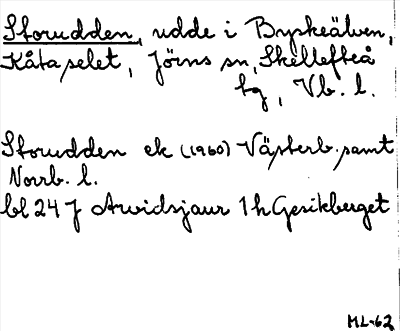 Storudden, udde i Byskeälven,
Kåtaselet, Jörns sn, Skellefteå
tg, Vb. l.
Storudden ek (1960) Västerb. samt
Norrb. l.
bl 24 J Arvidsjaur 1 h Gesikberget
ML-62